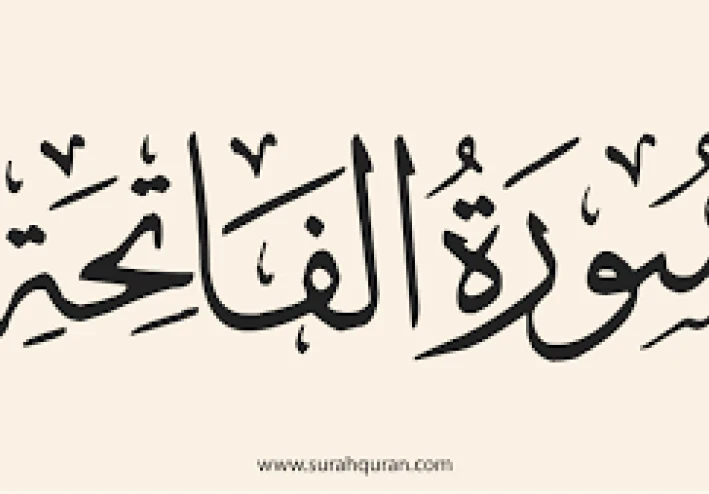 سُورَةُ الفَاتِحَةِ
www.surahquran.com